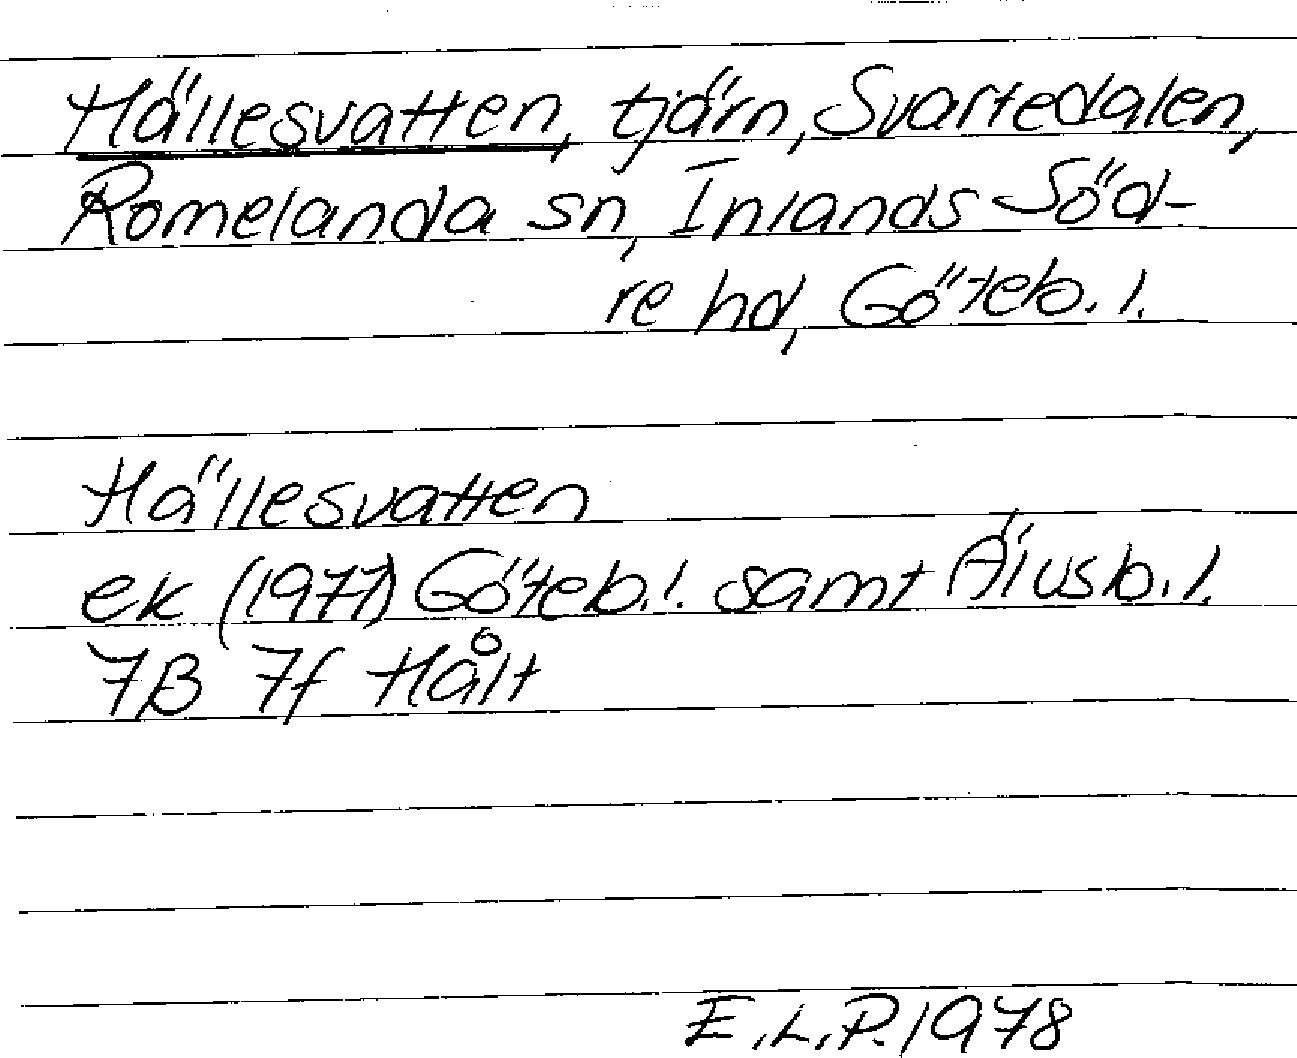 Hällesvatten, tjärn, Svartedalen,
Romelanda sn, Inlands Söd-
re hd, Göteb. l.
Hällesvatten
ek (1977) Göteb. l. samt Älvsb. l.
7B 7f Hålt
E.L.P. 1978